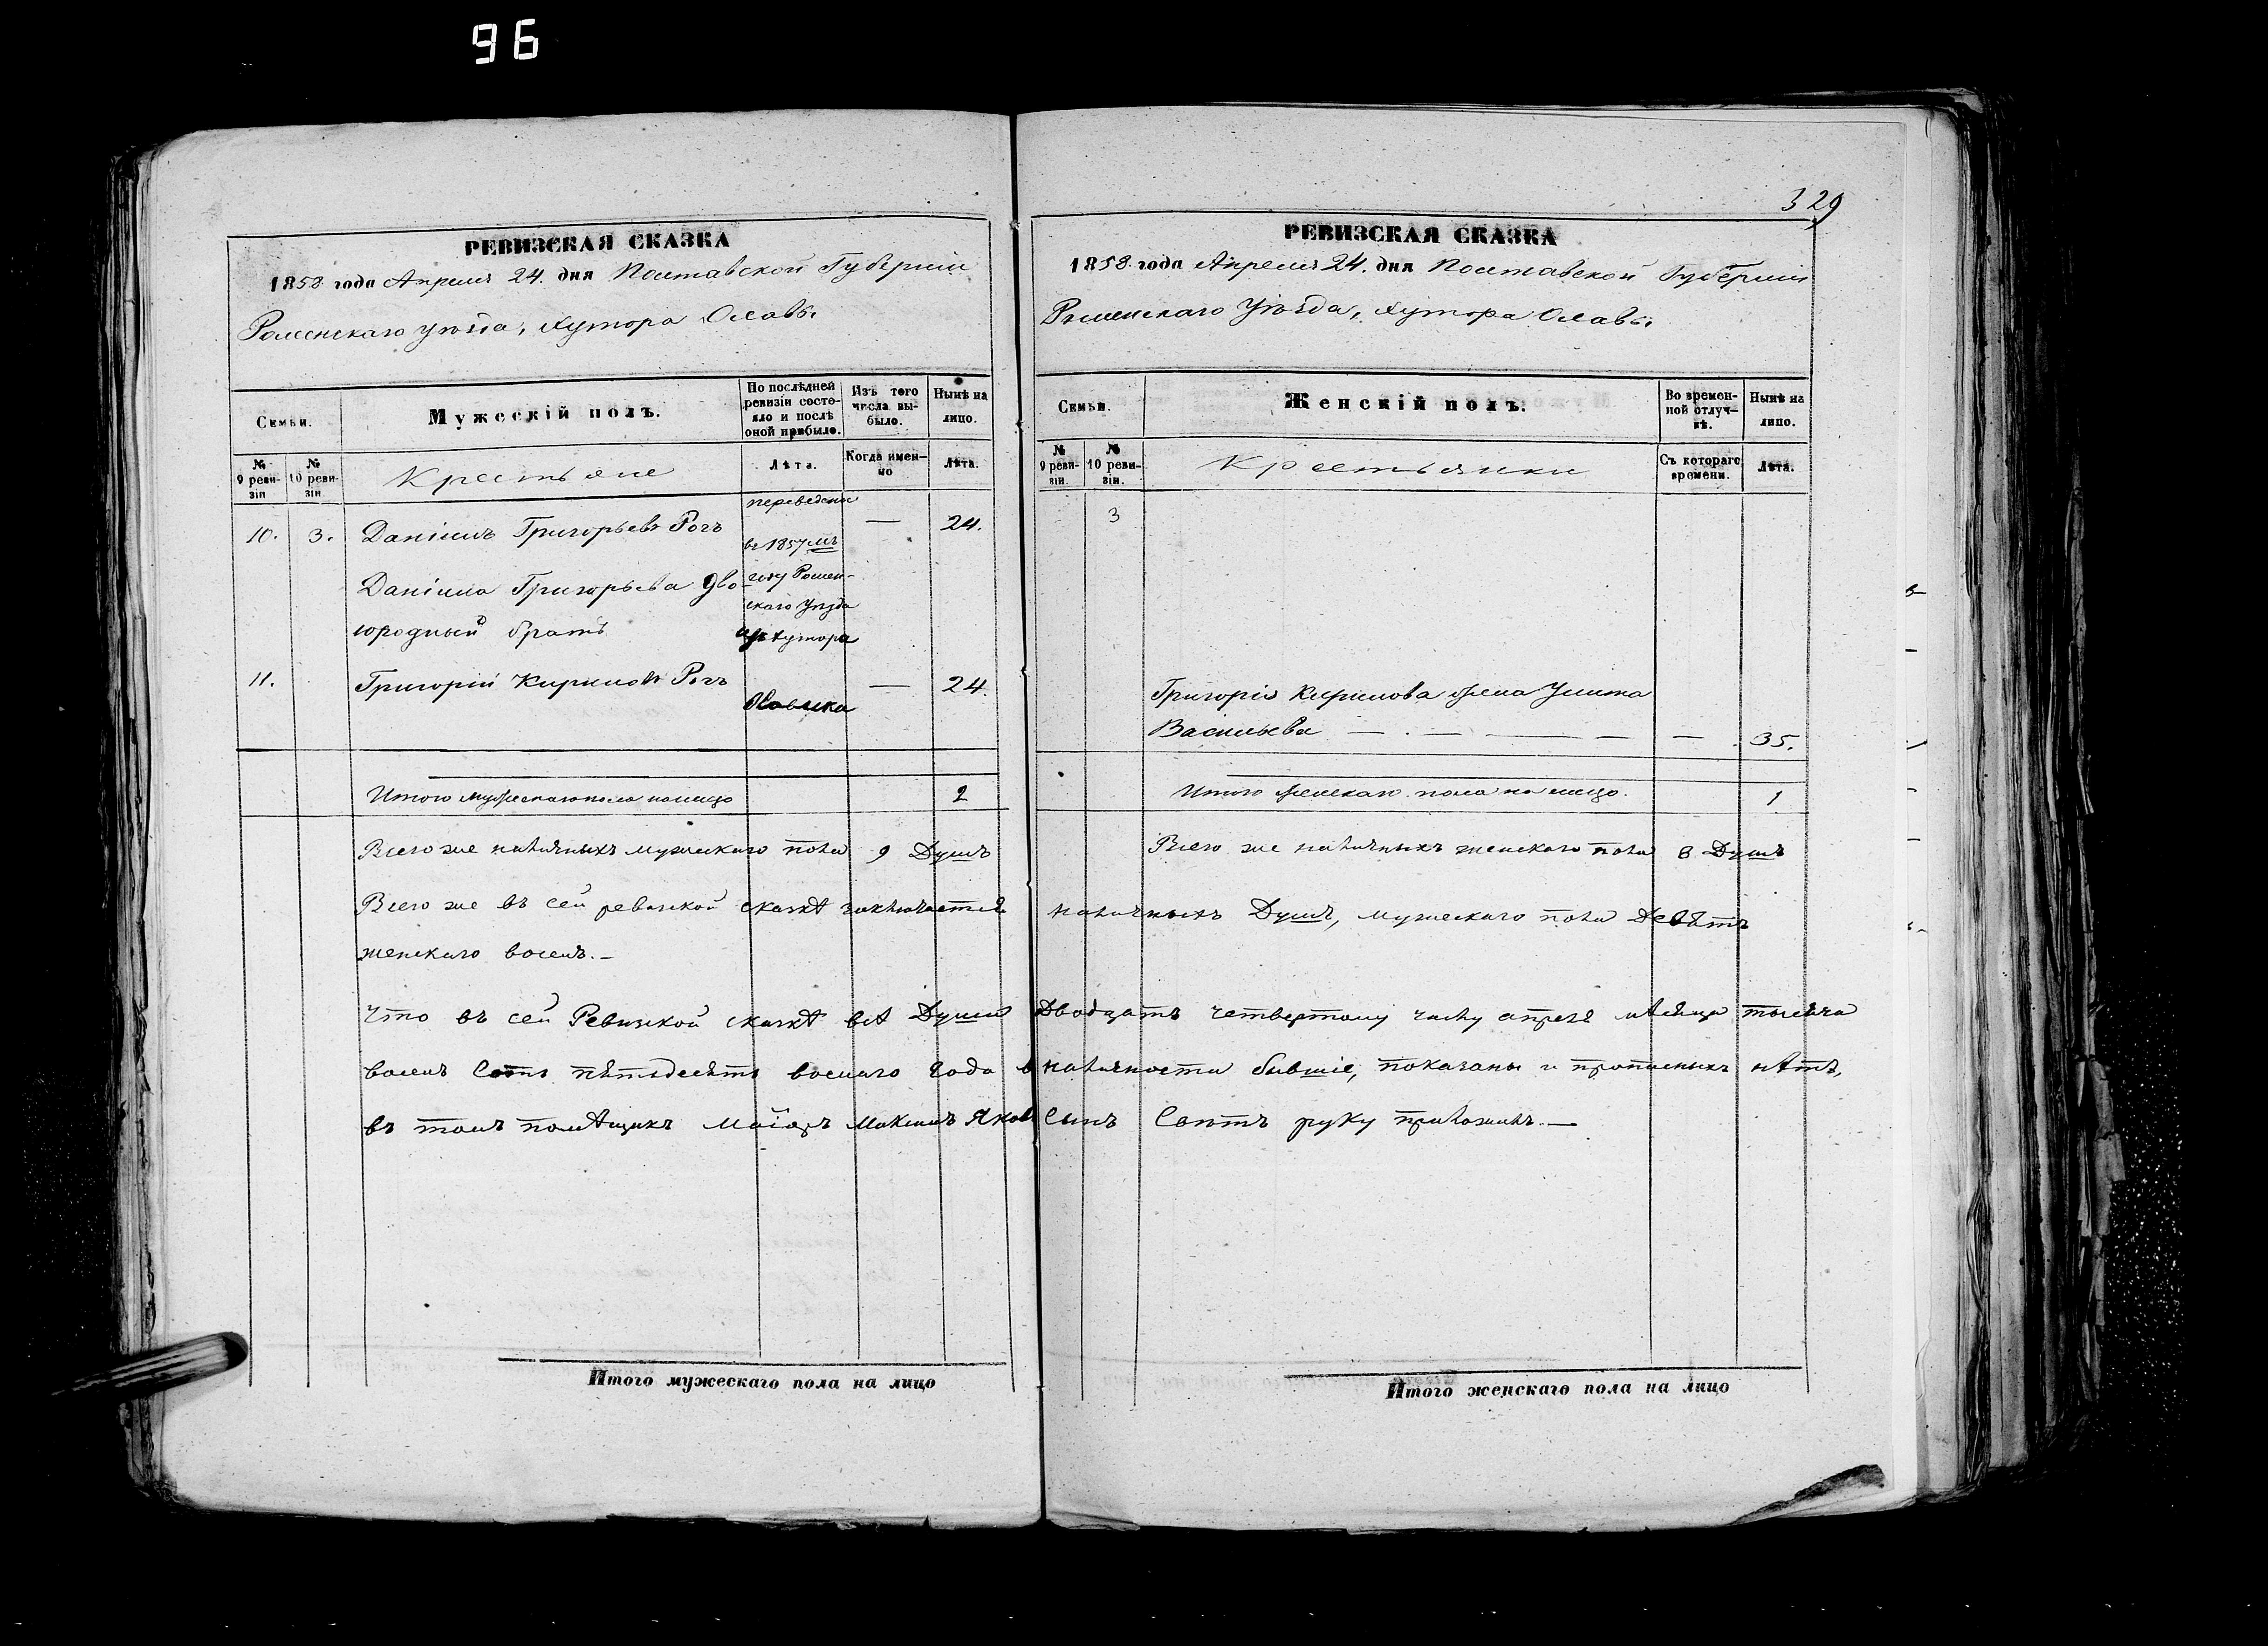 96
329
РЕВИЗСКАЯ СКАЗКА
1858 года Апреля 24. дня Полтавской Губерніи
Роменскаго уѣзда, Хутора Олавы
Семьи.
Мужескій полъ.
По послѣдней ревизіи состояло и послѣ оной прибыло.
Изъ того числа выбыло.
Нынѣ на лицо.
№ 9 ревизіи
№ 10 ревизіи
Крестьяне
Лѣта.
Когда именно
Лѣта.
10. 3. Даніилъ Григорьевъ Рогъ переведены въ 1857мъ — 24.
Даніила Григорьева дво году Ромен-
юродный братъ скаго Уѣзда
изъ хутора
11. Григорій Кириловъ Рогъ — 24.
Итого мужескаго пола налицо 2
Всего же наличныхъ мужескаго пола 9 Душъ
РЕВИЗСКАЯ СКАЗКА
1858 года Апреля 24. дня Полтавской Губерніи
Роменскаго Уѣзда, Хутора Олавы
Семьи.
Женскій полъ.
Во временной отлучкѣ.
Нынѣ на лицо.
№ 9 ревизіи.
№ 10 ревизіи.
Крестьянки
Съ котораго времени.
Лѣта.
3
Григорія Кирилова жена Улита
Васильева — — — — — 35.
Итого женскаго пола на лицо. 1
Всего же наличныхъ женскаго пола 8 Душъ
Всего же въ сей ревизкой сказкѣ заключается наличныхъ Душъ, мужескаго пола Девять
женскаго восемь. —
Что въ сей Ревизкой сказкѣ всѣ Души Двадцать четвертому числу апреля мѣсяца тысяча
восемь Сотъ пятьдесятъ восмаго года в наличности бывшіе, показаны и прописныхъ нѣтъ,
въ томъ помѣщикъ Маіоръ Максимъ Яковъ Сынъ руку приложилъ. —
Итого мужескаго пола на лицо
Итого женскаго пола на лицо